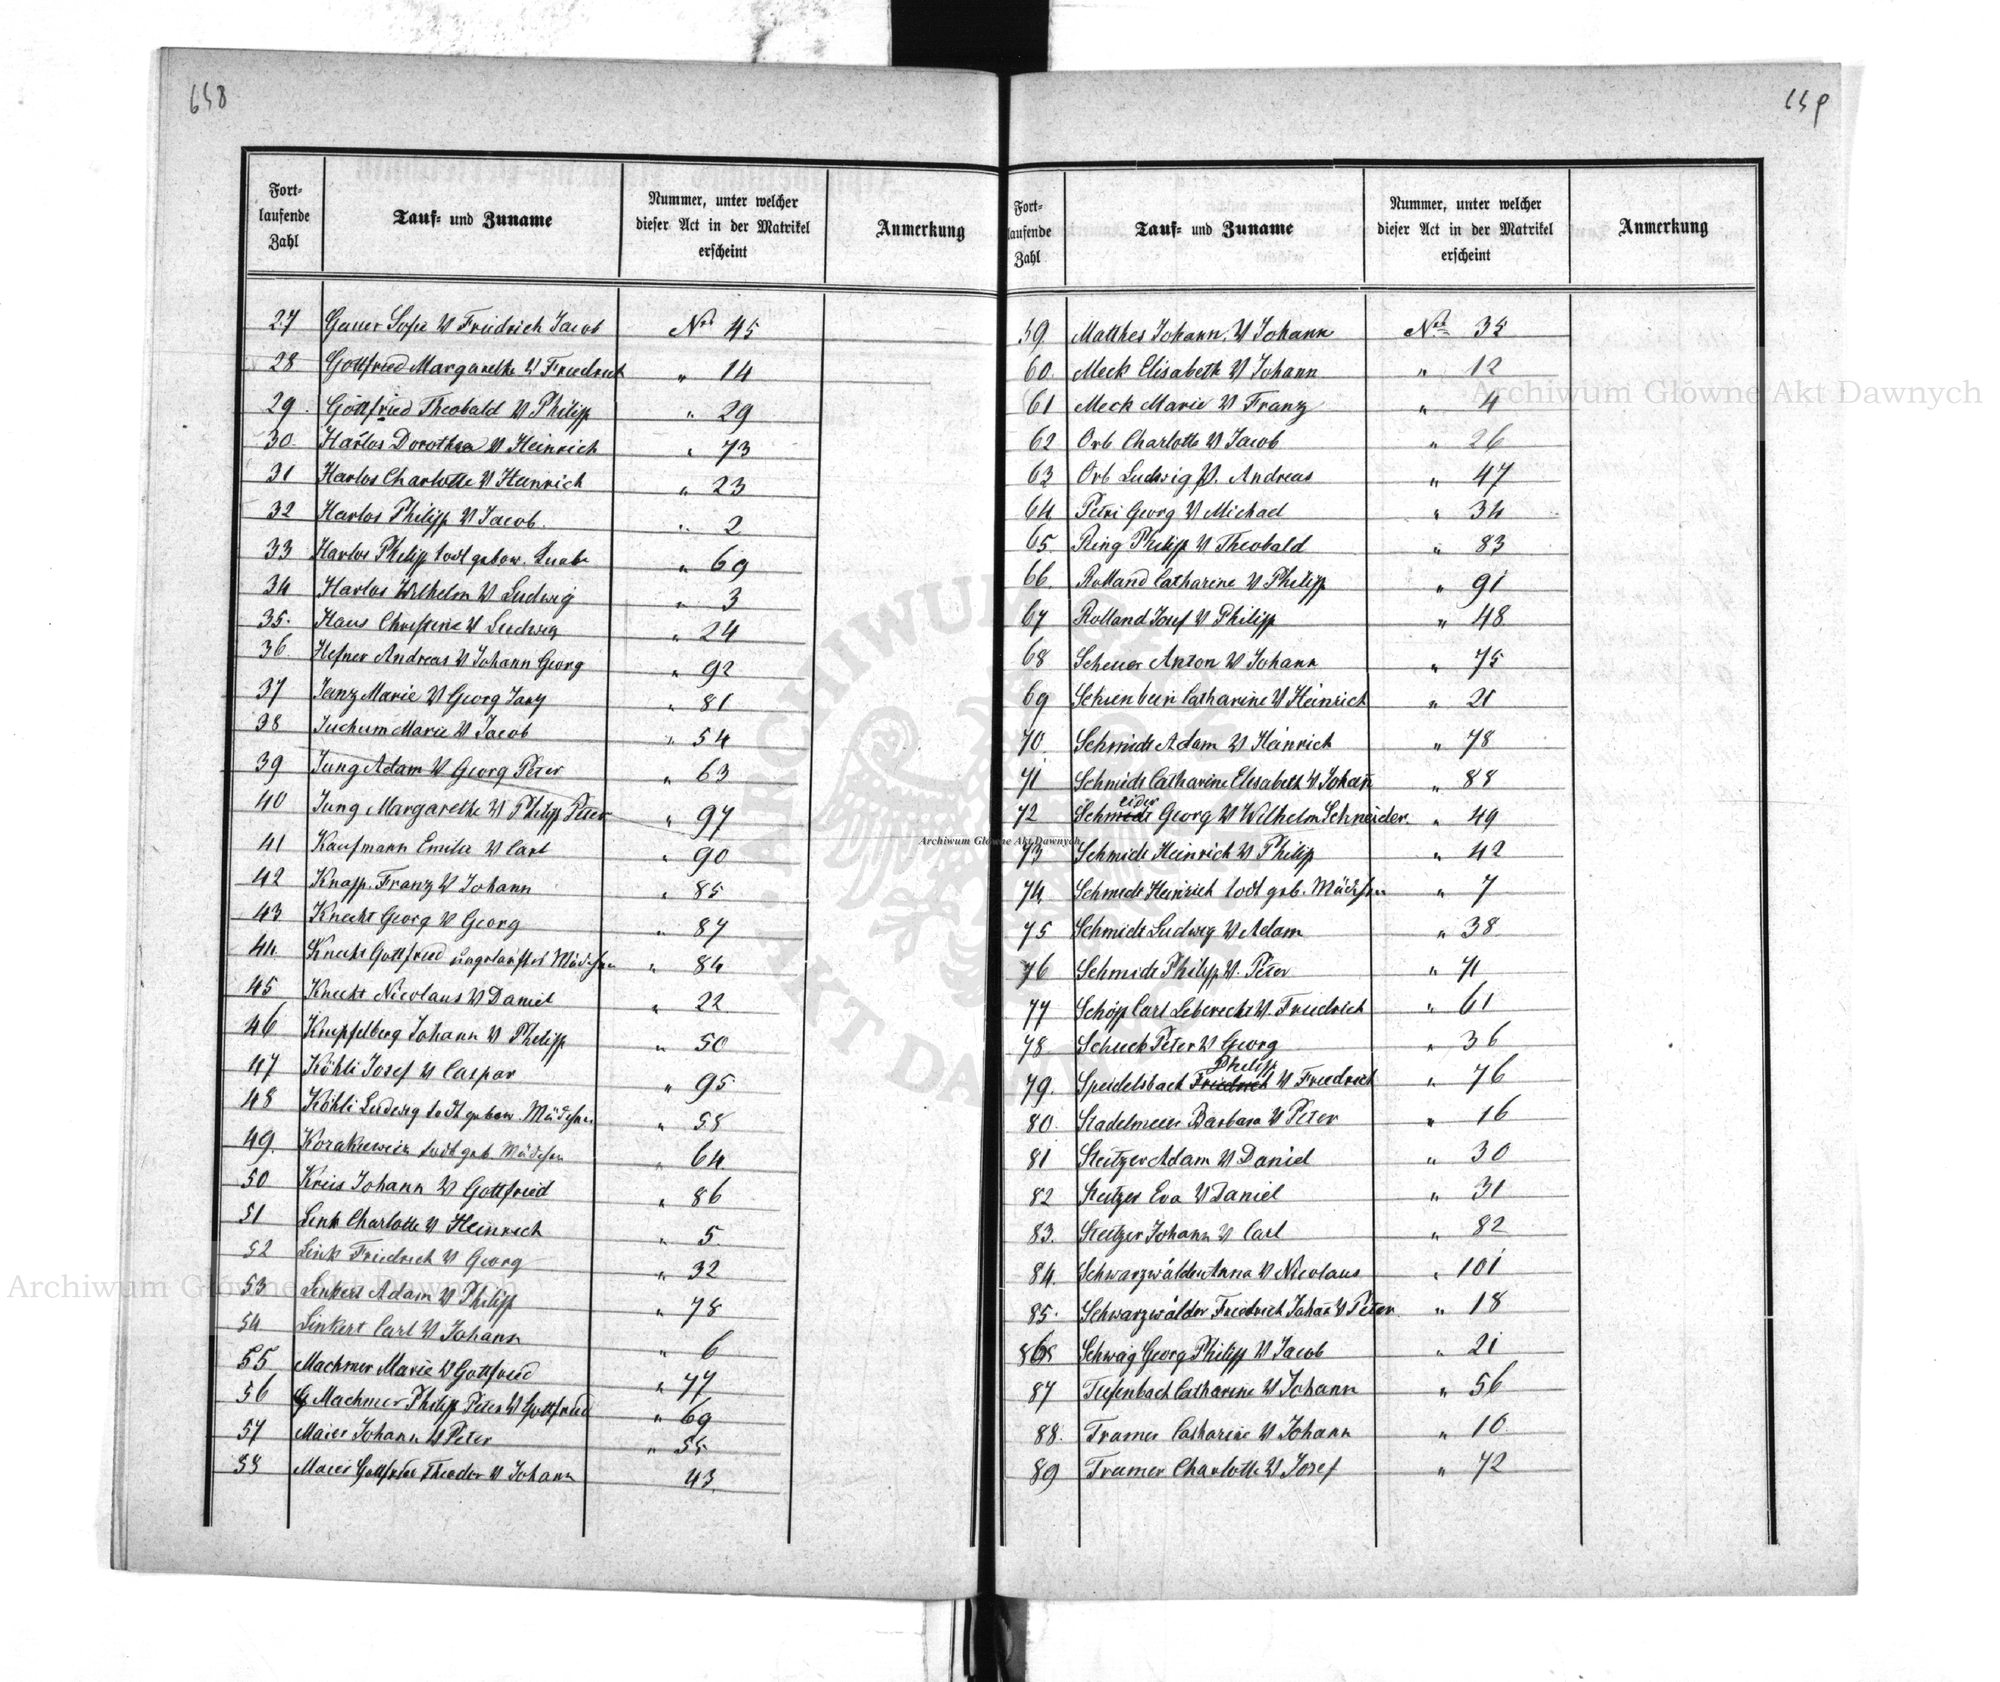 658
Fort-
laufende
Zahl
Tauf- und Zuname
Nummer, unter welcher
dieser Act in der Matrikel
erscheint
Anmerkung
27 Gauer Sofie V Friedrich Jacob No 45
28 Gottfried Margarethe V Friedrich " 14
29. Gottfried Theobald V Philipp " 29
30. Harlos Dorothea V Heinrich " 73
31 Harlos Charlotte V Heinrich " 23
32 Harlos Philipp V Jacob. " 2
33 Harlos Philipp todt gebor. Knabe " 69
34 Harlos Wilhelm V Ludwig " 3
35. Haus Christine V Ludwig " 24
36 Hefner Andreas V Johann Georg " 92
37 Janz Marie V Georg " 81
38 Juchum Marie V Jacob " 54
39 Jung Adam V Georg Peter " 63
40 Jung Margarethe V Philipp Peter " 97
41 Kaufmann Emilie V Carl " 90
42 Knapp. Franz V Johann " 85
43 Knecht Georg V Georg " 87
44 Knecht Gottfried ungetauftes Mädchen " 84
45 Knecht Nicolaus V Daniel " 22
46 Knipfelberg Johann V Philipp " 50
47 Köhli Josef V Caspar " 95
48 Köhli Ludwig todt gebor. Mädchen " 58
49. Korakiewicz todt geb. Mädchen " 64
50 Kreis Johann V Gottfried " 86
51 Link Charlotte V Heinrich " 5
52 Link Friedrich V Georg " 32
53 Linkert Adam V Philipp " 78
54 Linkert Carl V Johann " 6
55 Machmer Marie V Gottfried " 77
56 Machmer Philipp Peter V Gottfried " 69
57 Maier Johann V Peter " 55
58 Maier Gottfried Theodor V Johann 43.
659
Fort-
laufende
Zahl
Tauf- und Zuname
Nummer, unter welcher
dieser Act in der Matrikel
erscheint
Anmerkung
59. Matthes Johann. V Johann No 35
60. Meck Elisabeth V Johann " 12
61 Meck Marie V Franz " 4
62 Orb Charlotte V Jacob " 26
63 Orb Ludwig V. Andreas " 47
64 Petri Georg V Michael " 34
65. Ring Philipp V Theobald " 83
66. Rolland Catharine V Philipp " 91
67 Rolland Josef V Philipp " 48
68 Scheuer Anton V Johann " 75
69 Schienbein Catharine V Heinrich " 20
70 Schmidt Adam V Heinrich " 78
71 Schmidt Catharine Elisabeth V Johann " 88
72 Schneider Georg V Wilhelm Schneider. " 49
73 Schmidt Heinrich V Philip " 42
74. Schmidt Heinrich todt geb. Mädchen " 7
75 Schmidt Ludwig V Adam " 38
76 Schmidt Philipp V. Peter " 71
77 Schöpp Carl Leberecht V. Friedrich " 61
78 Schuck Peter V Georg " 36
Philipp
79. Speidelsbach Friedrich V Friedrich " 76
80. Stadelmeier Barbara V Peter " 16
81 Steitzer Adam V Daniel " 30
82 Steitzer Eva V Daniel " 31
83. Steitzer Johann V Carl " 82
84. Schwarzwälder Anna V Nicolaus " 101
85. Schwarzwälder Friedrich Johann V Peter " 18
86 Schwaig Georg Philipp V Jacob " 21
87 Tiefenbach Catharine V Johann " 56
88. Tramer Catharine V Johann " 10
89 Tramer Charlotte V Josef " 72
Archiwum Główne Akt Dawnych
Archiwum Główne Akt Dawnych
Archiwum Główne Akt Dawnych